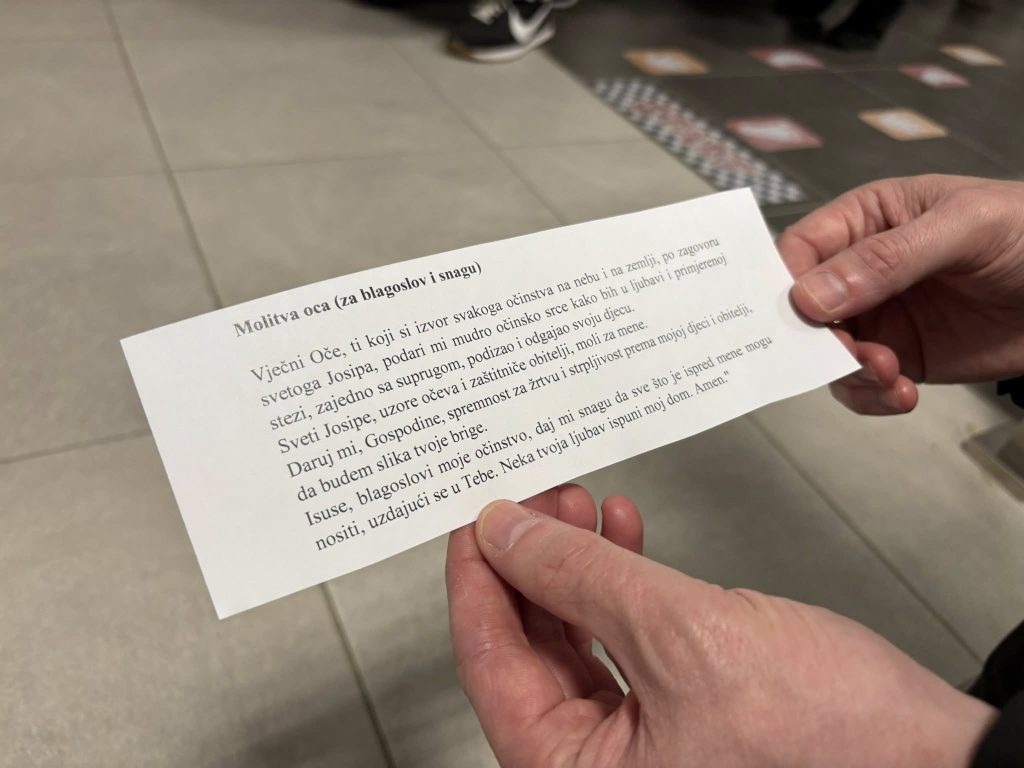 Molitva oca (za blagoslov i snagu)
Vječni Oče, ti koji si izvor svakoga očinstva na nebu i na zemlji, po zagovoru
svetoga Josipa, podari mi mudro očinsko srce kako bih u ljubavi i primjerenoj
stezi, zajedno sa suprugom, podizao i odgajao svoju djecu.
Sveti Josipe, uzore očeva i zaštitniče obitelji, moli za mene.
Daruj mi, Gospodine, spremnost za žrtvu i strpljivost prema mojoj djeci i obitelji,
da budem slika tvoje brige.
Isuse, blagoslovi moje očinstvo, daj mi snagu da sve što je ispred mene mogu
nositi, uzdajući se u Tebe. Neka tvoja ljubav ispuni moj dom. Amen."